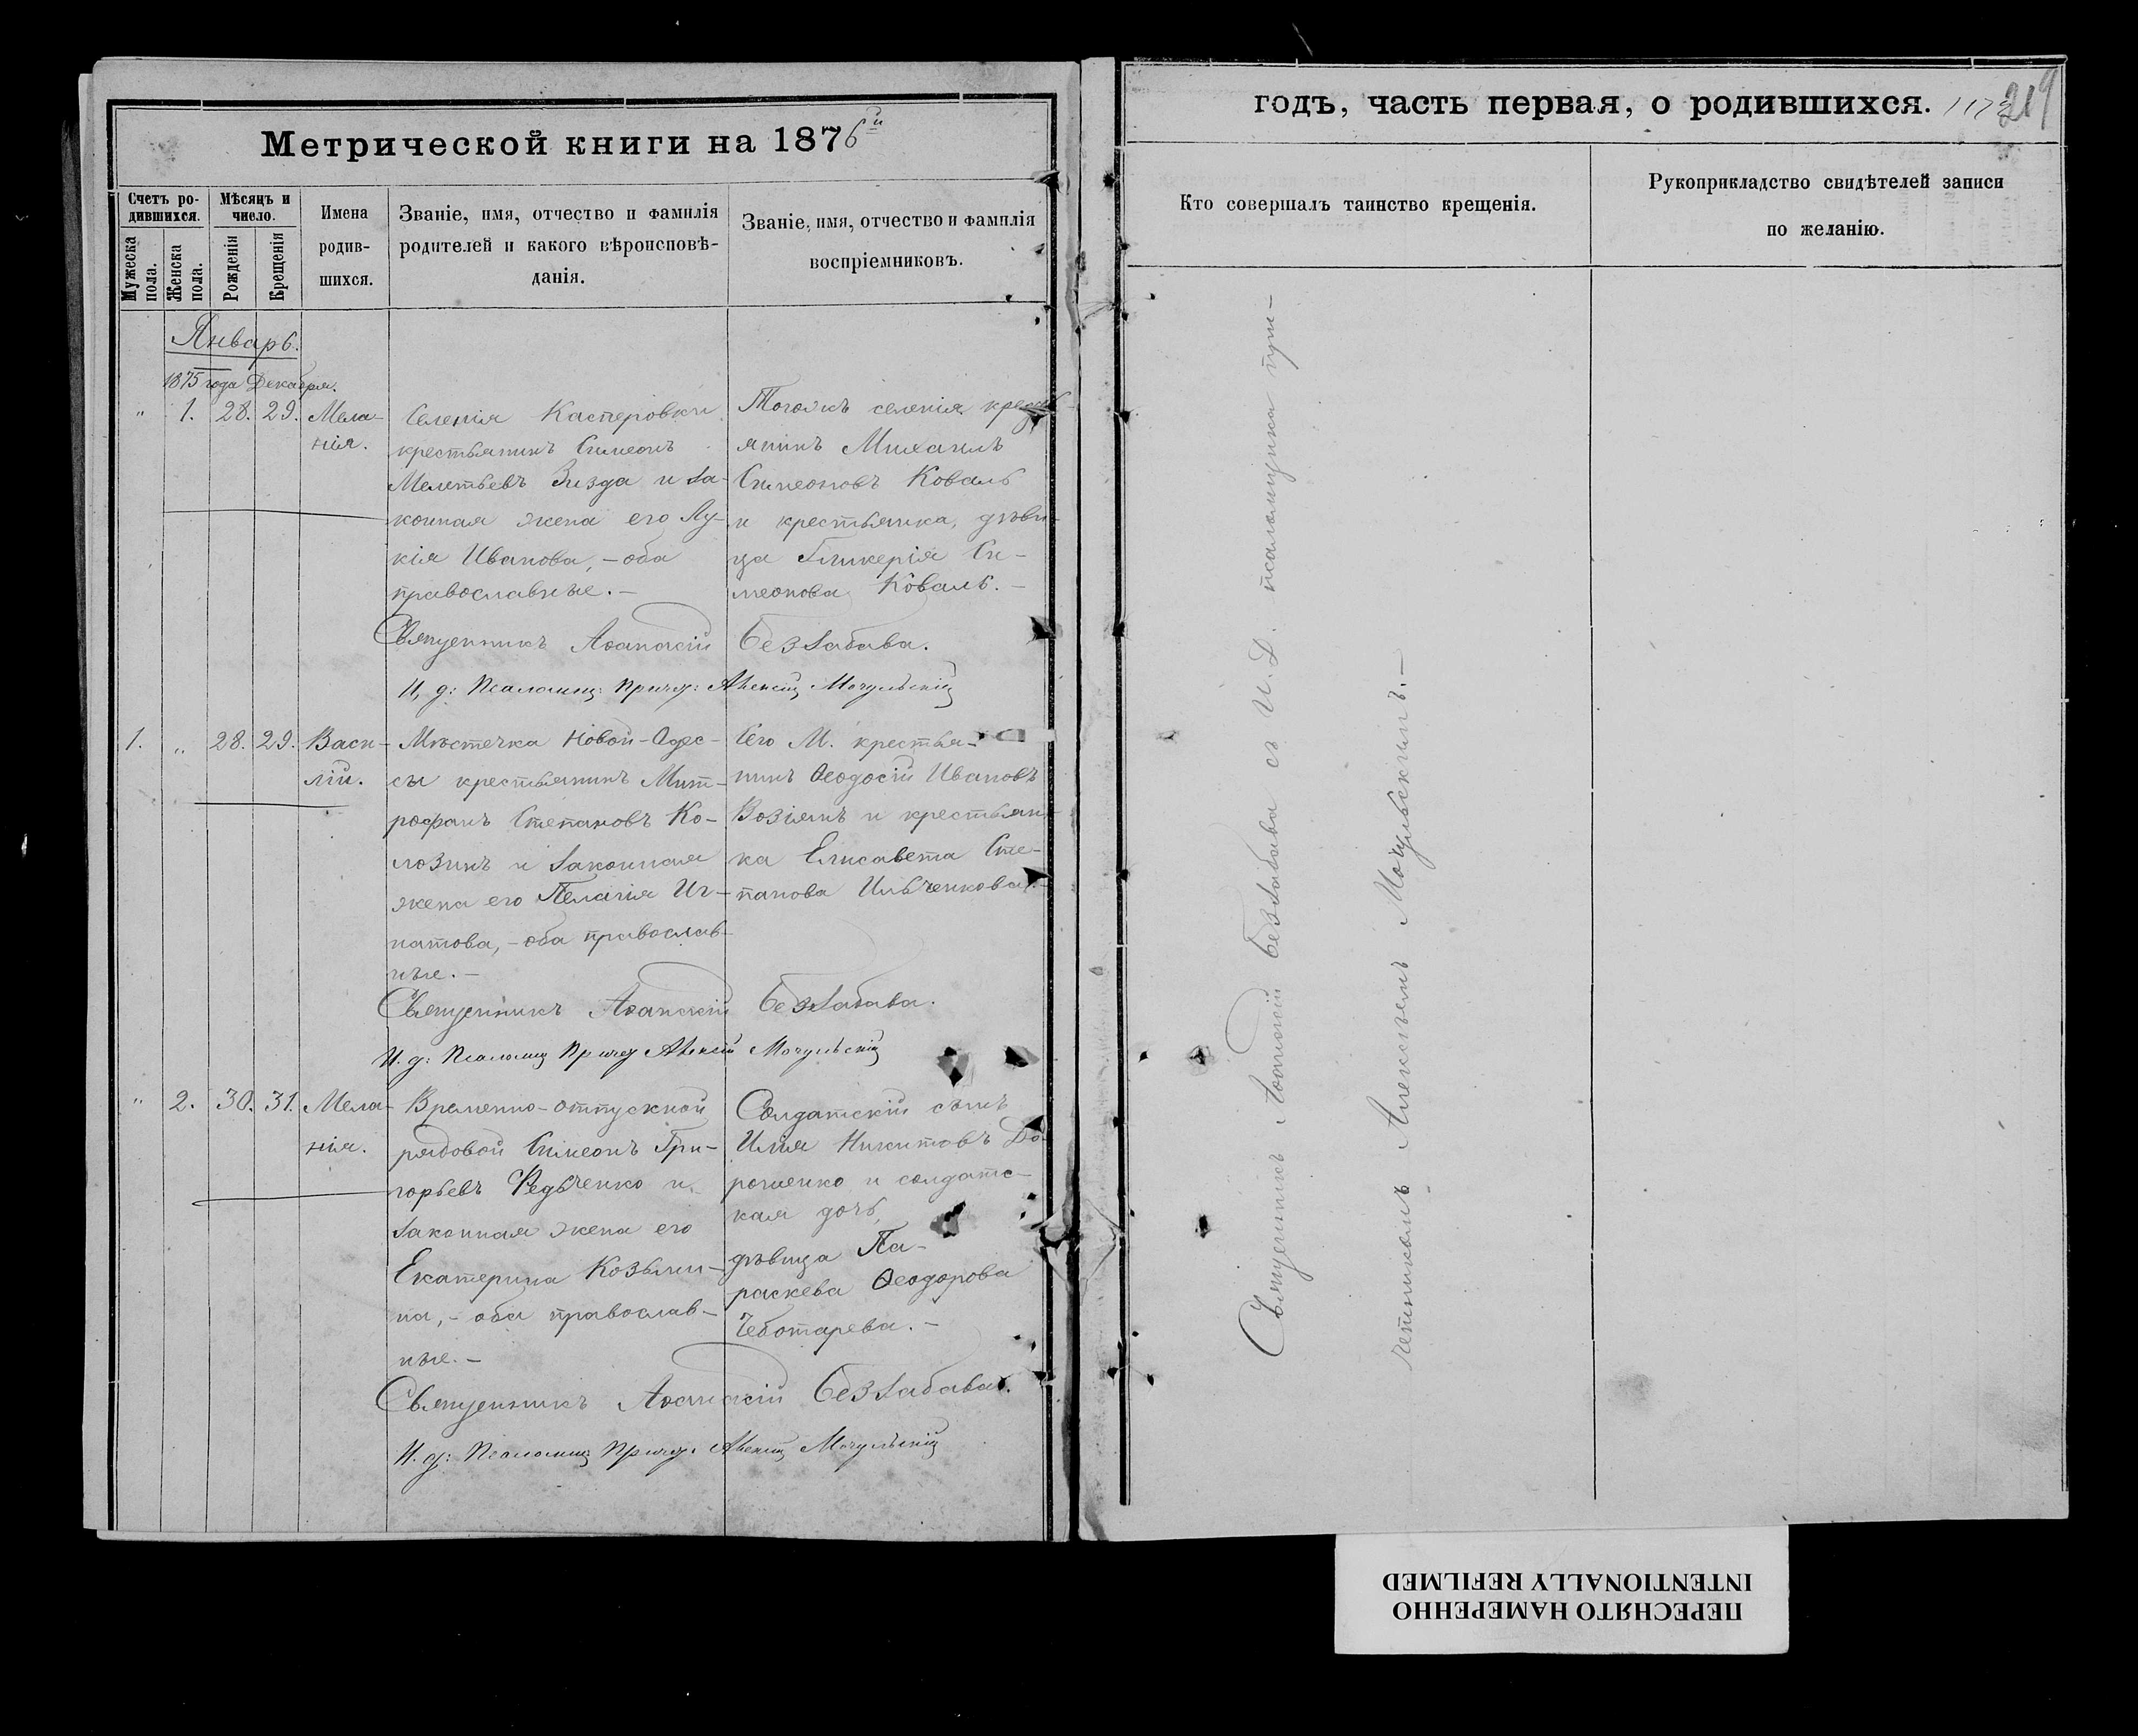 Метрической книги на 1876й
Счетъ ро-
дившихся.
Мужеска пола.
Женска пола.
Мѣсяцъ и число.
Рожденія
Крещенія
Имена
родив-
шихся.
Званіе, имя, отчество и фамилія
родителей и какого вѣроисповѣ-
данія.
Званіе, имя, отчество и фамилія
воспріемниковъ.
Январь.
1875 года Декабря.
" 1. 28. 29. Мела-
нія.
Селенія Касперовки
крестьянинъ Симеонъ
Мелетьевъ Зизда и за-
конная жена его Лу-
кія Иванова, – оба
православные. –
Тогожъ селенія кресть-
янинъ Михаилъ
Симеоновъ Коваль
и крестьянка, дѣви-
ца Гликерія Си-
меонова Коваль. –
Священникъ Аѳанасій Беззабава.
И, д: Псаломщ: Причет: Алексѣй Мочульскій
1. " 28. 29. Васи-
лій.
Мѣстечка Новой-Одес-
сы крестьянинъ Мит-
рофанъ Степановъ Ко-
лозинъ и законная
жена его Пелагія Иг-
натова, – оба православ-
ные. –
Сего М. крестья-
нинъ Ѳеодосій Ивановъ
Возіянъ и крестьян-
ка Елисавета Сте-
панова Ильченкова. –
Священникъ Аѳанасій Беззабава.
И. д: Псаломщ Причет Алексѣй Мочульскій
" 2. 30. 31. Мела-
нія.
Временно-отпускной
рядовой Симеонъ Гри-
горьевъ Федьченко и
законная жена его
Екатерина Козьми-
на, – оба православ-
ные. –
Солдатскій сынъ
Илія Никитовъ До-
рошенко и солдатс-
кая дочь,
дѣвица Па-
раскева Ѳеодорова
Чеботарева. –
Священникъ Аѳанасій Беззабава.
И. д: Псаломщ Причет. Алексѣй Мочульскій
годъ, часть первая, о родившихся.
219
Кто совершалъ таинство крещенія.
Рукоприкладство свидѣтелей записи
по желанію.
Священникъ Аѳанасій Беззабава съ И. Д. псаломщика при-
четникомъ Алексѣемъ Мочульскимъ. –
ПЕРЕСНЯТО НАМЕРЕННО
INTENTIONALLY REFILMED